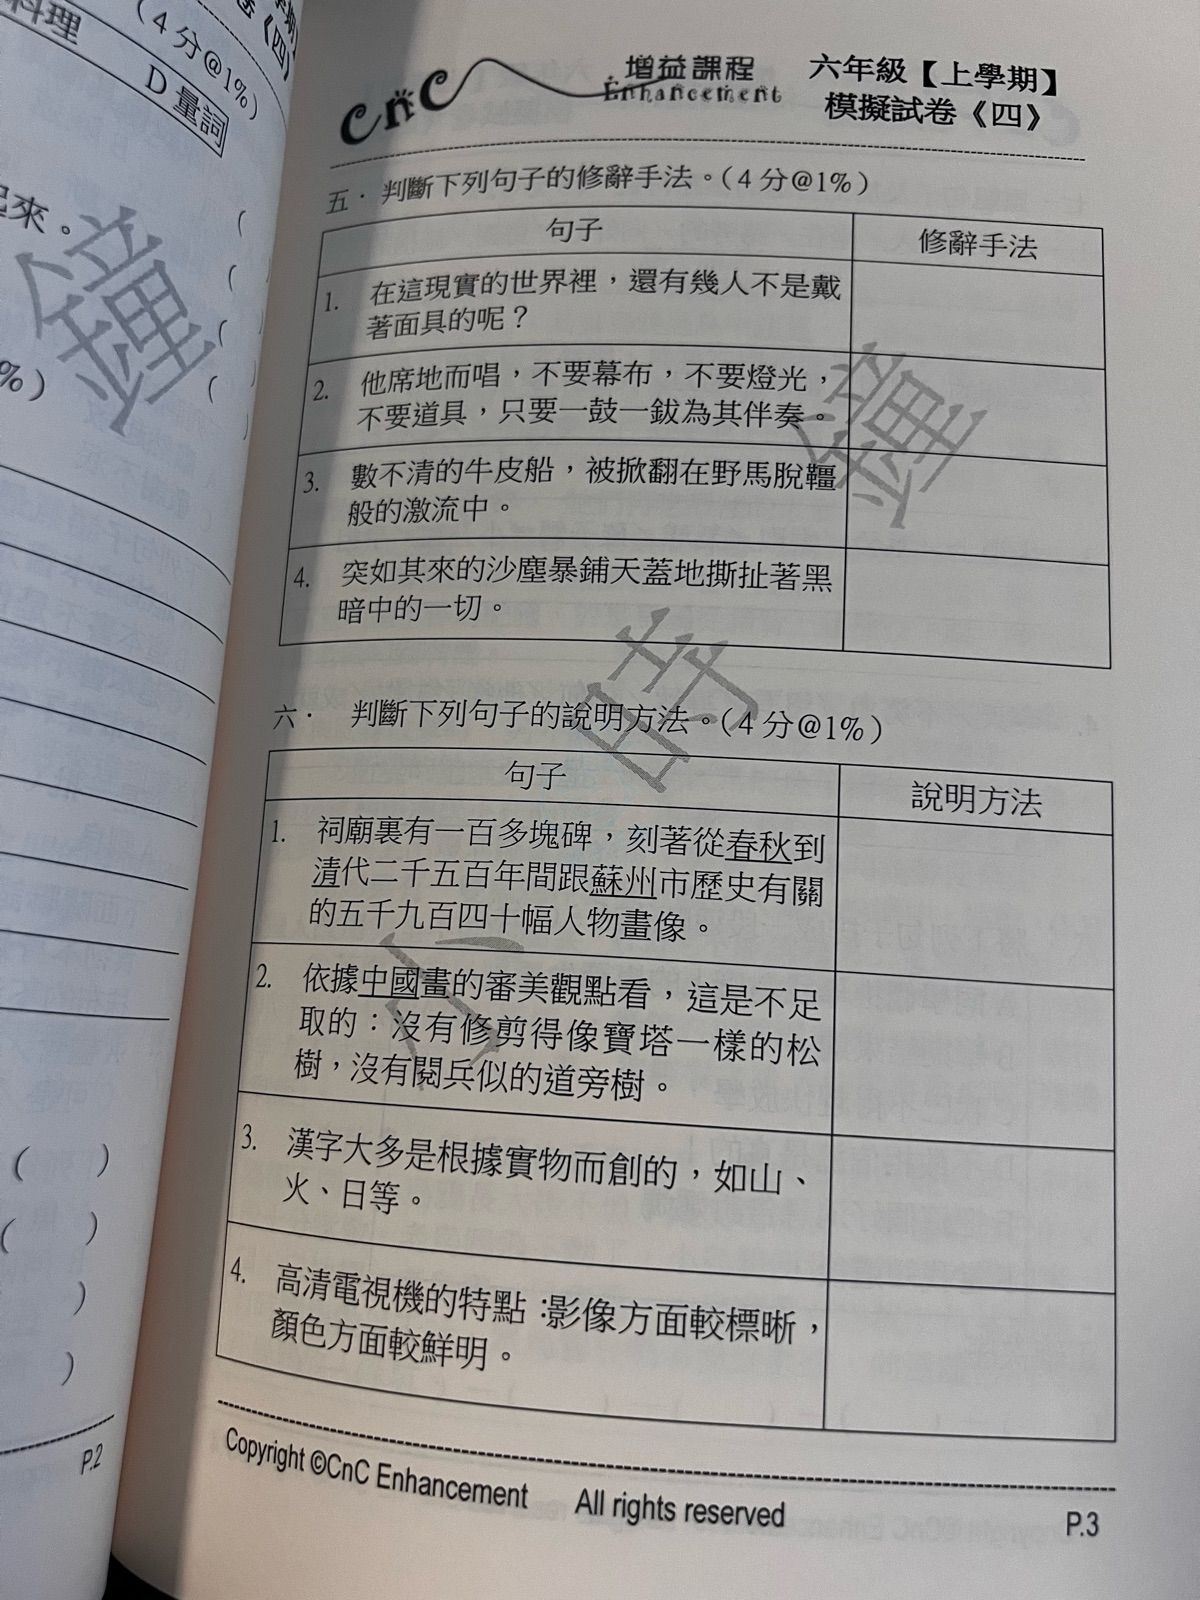 科理
(4分@1%)
D量詞
起來。
鐘
%)
( )
( )
( )
( )
P.2
CnC 增益課程
Enhancement
六年級【上學期】
模擬試卷《四》
五． 判斷下列句子的修辭手法。(4分@1%)
句子 修辭手法
1. 在這現實的世界裡，還有幾人不是戴
著面具的呢？
2. 他席地而唱，不要幕布，不要燈光，
不要道具，只要一鼓一鈸為其伴奏。
鐘
3. 數不清的牛皮船，被掀翻在野馬脫韁
般的激流中。
4. 突如其來的沙塵暴鋪天蓋地撕扯著黑
暗中的一切。
時
六． 判斷下列句子的說明方法。(4分@1%)
句子 說明方法
1. 祠廟裏有一百多塊碑，刻著從春秋到
清代二千五百年間跟蘇州市歷史有關
的五千九百四十幅人物畫像。
小
2. 依據中國畫的審美觀點看，這是不足
取的：沒有修剪得像寶塔一樣的松
樹，沒有閱兵似的道旁樹。
3. 漢字大多是根據實物而創的，如山、
火、日等。
4. 高清電視機的特點：影像方面較標晰，
顏色方面較鮮明。
Copyright ©CnC Enhancement All rights reserved P.3